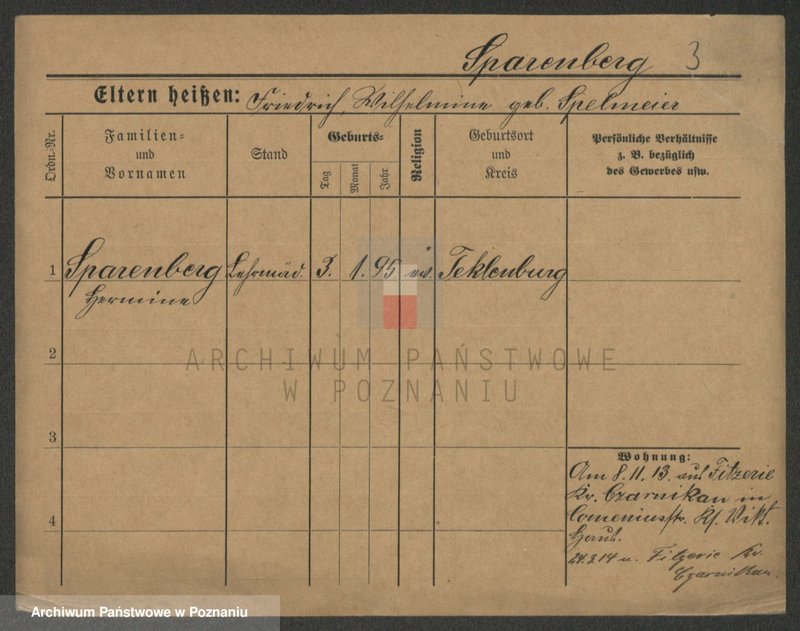 Sparenberg 3
Eltern heißen: Friedrich, Wilhelmine geb. Spelmeier
Ordn.-Nr.
Familien- und Vornamen
Stand
Geburts-
Tag
Monat
Jahr
Religion
Geburtsort und Kreis
Persönliche Verhältnisse
z. B. bezüglich
des Gewerbes usw.
1 Sparenberg Lehrmäd. 3. 1. 95 ev. Teklenburg
Hermine
2
ARCHIWUM PAŃSTWOWE
W POZNANIU
3
Wohnung:
Am 8.11.13. aus Fitzerie
Kr. Czarnikau in
Comeniusstr. Kf. Vikt.
Haus.
4
24.3.14 n. Fitzerie Kr.
Czarnikau.
Archiwum Państwowe w Poznaniu